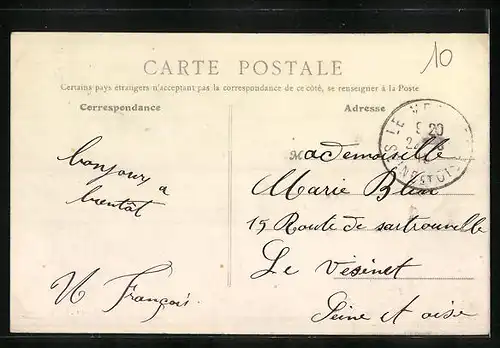 10
CARTE POSTALE
Certains pays étrangers n'acceptant pas la correspondance de ce côté, se renseigner à la Poste
Correspondance
Adresse
bonjour a
bientôt
François
Mademoiselle
Marie Blan
15 Route de sartrouville
Le Vésinet
Seine et oise
LE
9 20